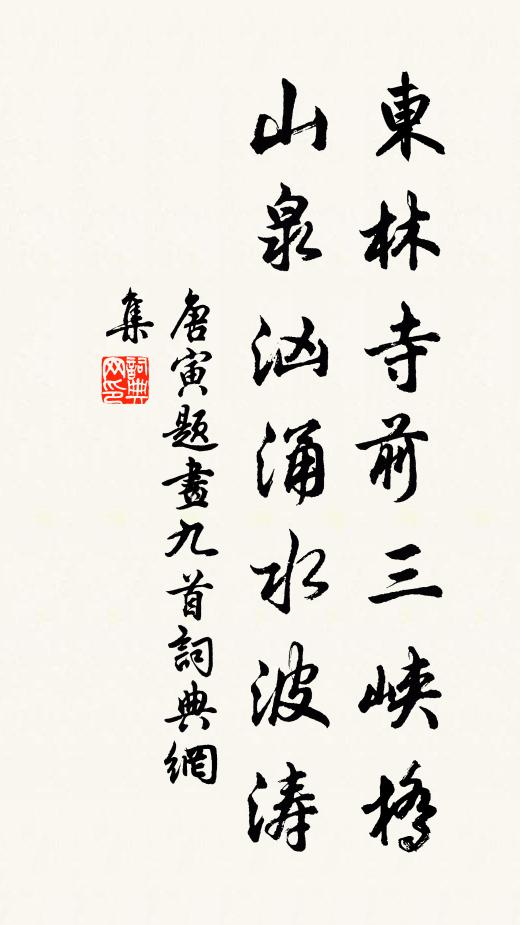 東林寺前三峽橋
山泉汹涌水波涛
唐寅題畫九首詞典網
集
詞典
网印